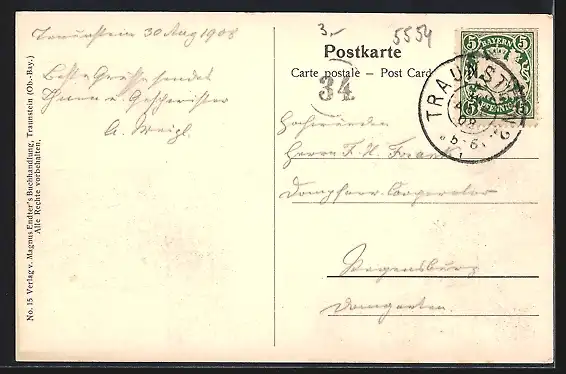 Traunstein 30 Aug 1908
Beste Grüsse sendet
Ihnen u. Geschwister
A. Weigl.
No. 15 Verlag v. Magnus Endter's Buchhandlung, Traunstein (Ob.-Bay.)
Alle Rechte vorbehalten.
3,-
5554
Postkarte
Carte postale – Post Card
34
BAYERN
5 5
5 PFENNIG 5
TRAUNSTEIN
Hochwürden
Herrn F. X. Frank
Dompfarr-Cooperator
Regensburg
Domgarten.